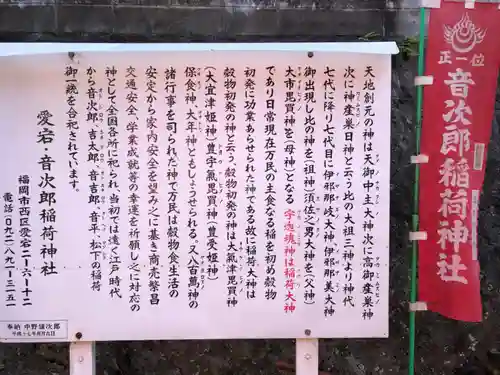 天地創元の神は天御中主大神次に高御産巣神
次に神産巣日神と云う此の大祖三神より神代
七代に降り七代目に伊邪那岐大神伊邪那美大神
御出現し此の神を(祖神)須佐之男大神を(父神)
大市毘買神を(母神)となる 宇迦魂神は稲荷大神
であり日常現在万民の主食なる稲を初め穀物
初発に功業あらせられた神である故に稲荷大神は
穀物初発の神と云う、穀物初発の神は大氣津毘買神
(大宜津姫神)豊宇氣毘買神(豊受姫神)
保食神、大年神ともしょうせられる。又八百萬神の
諸行事を司られた神で万民は穀物食生活の
安定から家内安全を望み之に基き商売繁昌
交通安全、学業成就等の幸運を祈願し之に対応の
神として全国各所に祀られ、当初では遠く江戸時代
から音次郎、吉太郎、音吉郎、音平、松下の稲荷
御一統を合祀されています。
愛宕・音次郎稲荷神社
福岡市西区愛宕二-六-十二
電話(〇九二)八九一-三一五一
奉納 中野鎮郎
平成十七年四月九日
正一位 音次郎稲荷神社